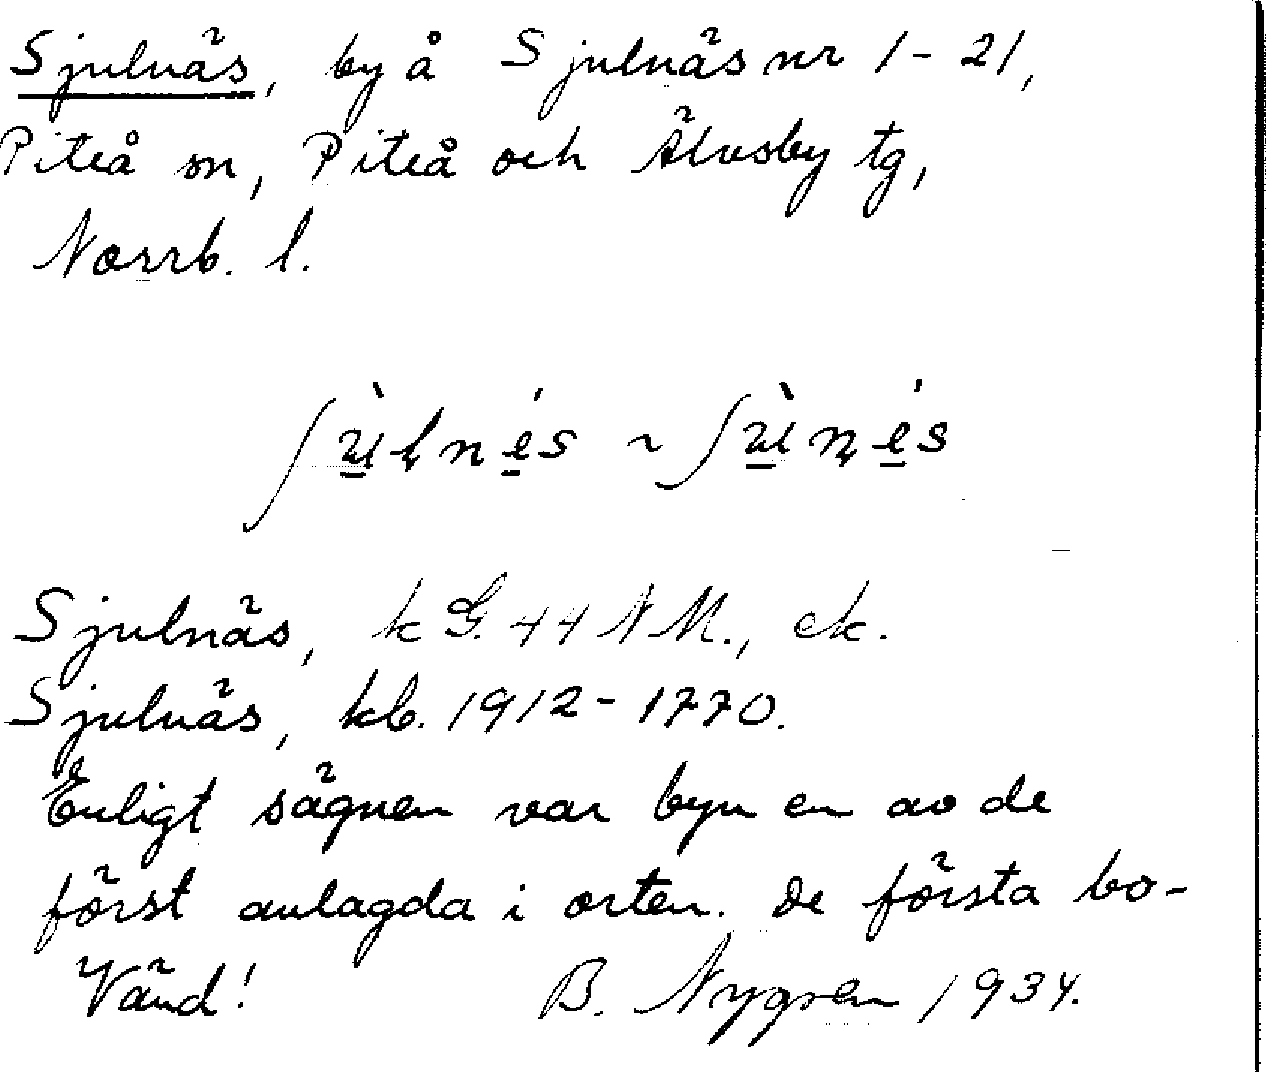 Sjulnäs, by å Sjulnäs nr 1-21,
Piteå sn, Piteå och Älvsby tg,
Norrb. l.
ʃù̲ḷné̲s ~ ʃù̲ṇé̲s
Sjulnäs, k G. 44 NM., ek.
Sjulnäs, kb. 1912-1770.
Enligt sägnen var byn en av de
först anlagda i orten. De första bo-
Vänd! B. Nygren 1934.